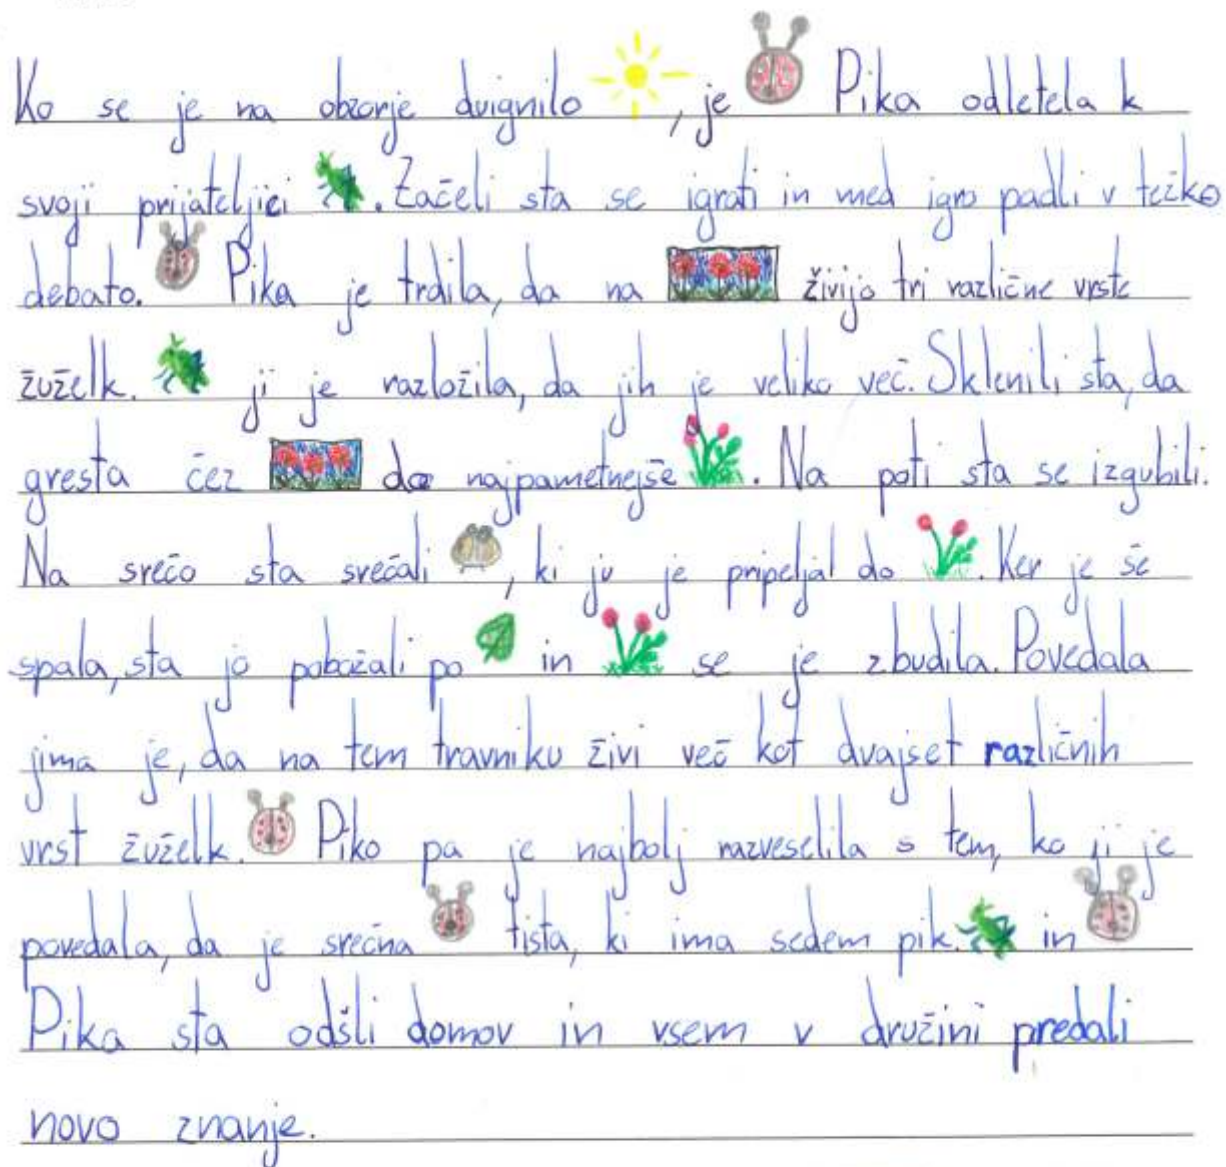 Ko se je na obzorje dvignilo , je Pika odletela k
svoji prijateljici . Začeli sta se igrati in med igro padli v težko
debato. Pika je trdila, da na živijo tri različne vrste
žuželk. ji je razložila, da jih je veliko več. Sklenili sta, da
gresta čez do najpametnejše . Na poti sta se izgubili.
Na srečo sta srečali , ki ju je pripeljal do . Ker je še
spala, sta jo pobožali po in se je zbudila. Povedala
jima je, da na tem travniku živi več kot dvajset različnih
vrst žuželk. Piko pa je najbolj razveselila s tem, ko ji je
povedala, da je srečna tista, ki ima sedem pik. in
Pika sta odšli domov in vsem v družini predali
novo znanje.